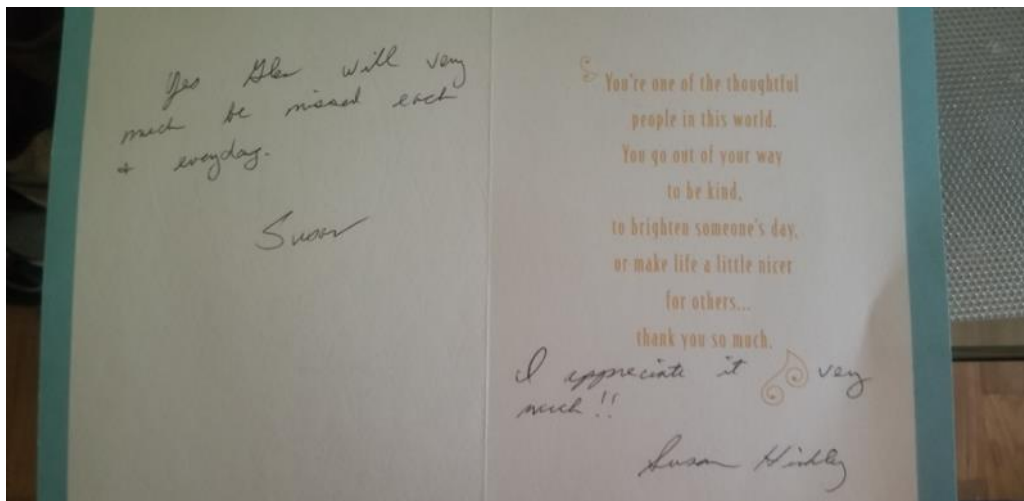 Yes Glen will very
much be missed each
+ everyday.
Susan
You're one of the thoughtful
people in this world.
You go out of your way
to be kind,
to brighten someone's day,
or make life a little nicer
for others...
thank you so much.
I appreciate it very
much!!
Susan